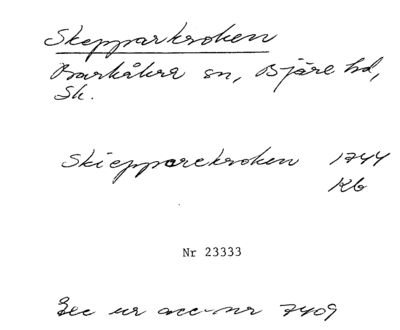 Skepparkroken
Barkåkra sn, Bjäre hd,
Sk.
Skiepparekroken 1744
Kb
Nr 23333
Exc ur acc-nr 7409